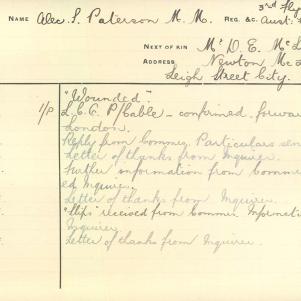 NAME Alec. S. Paterson M. M. REG. &c. 3rd Fly
Aust.
NEXT OF KIN Mr D. E. Mc
ADDRESS Newton Mc
Leigh Street City.
"Wounded"
1/P L.C.C. P/Cable - confirmed. forwar
London.
Reply from Commr. Particulars sen
Letter of thanks from Inquirer.
Further information from Comm
ed Inquirer.
Letter of thanks from Inquirer.
"Slips" received from Commr Informati
Inquirer
Letter of thanks from Inquirer